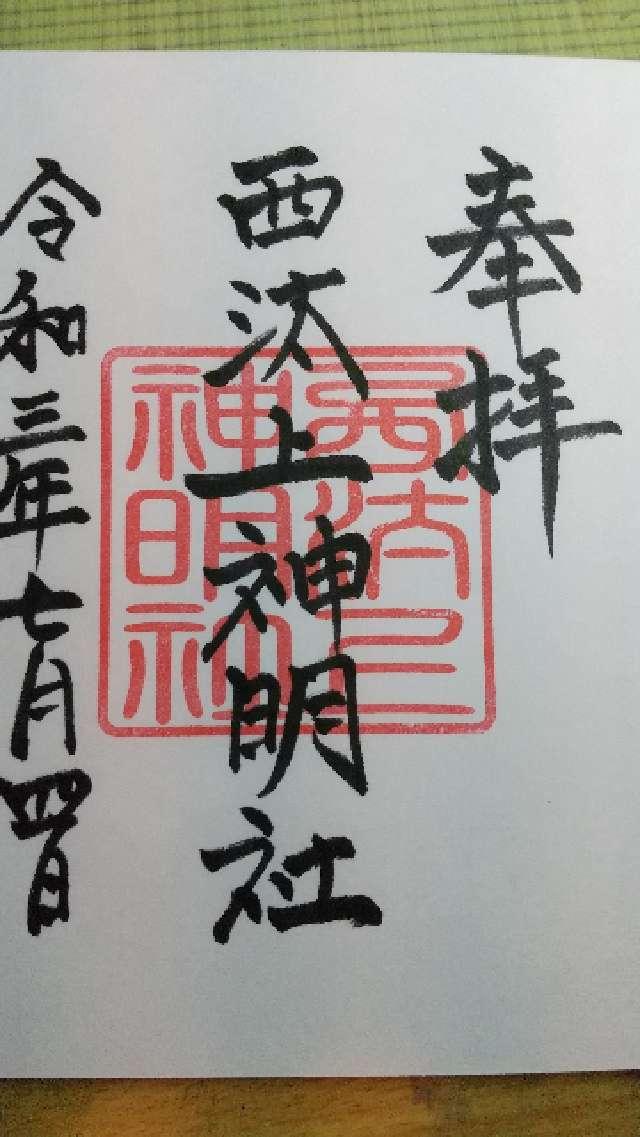 奉拝
西汰上神明社
令和三年七月四日
西汰上
神明社